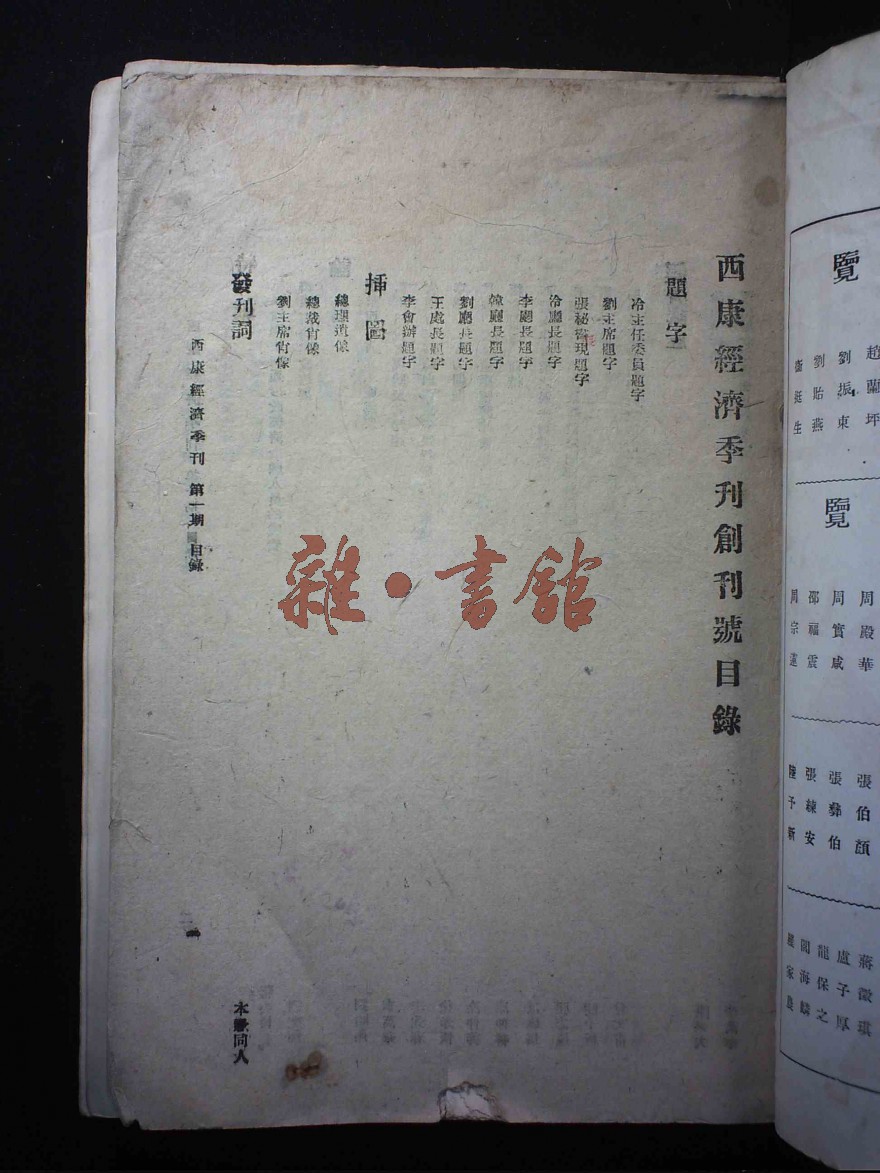 西康經濟季刊創刊號目錄
題字
冷主任委員題字
劉主席題字
張秘書現題字
冷廳長題字
李廳長題字
韓廳長題字
劉廳長題字
王處長題字
李會辦題字
插圖
總理遺像
總裁肖像
劉主席肖像
發刊詞
本社同人
西康經濟季刊 第一期 目錄
一
雜·書館
覽
趙蘭坪
劉振東
劉貽燕
衛挺生
覽
周殿華
周實咸
邵福震
周宗蓮
張伯顏
張彝伯
張練安
陸予新
蔣徵琪
盧子厚
龍保之
閻海麟